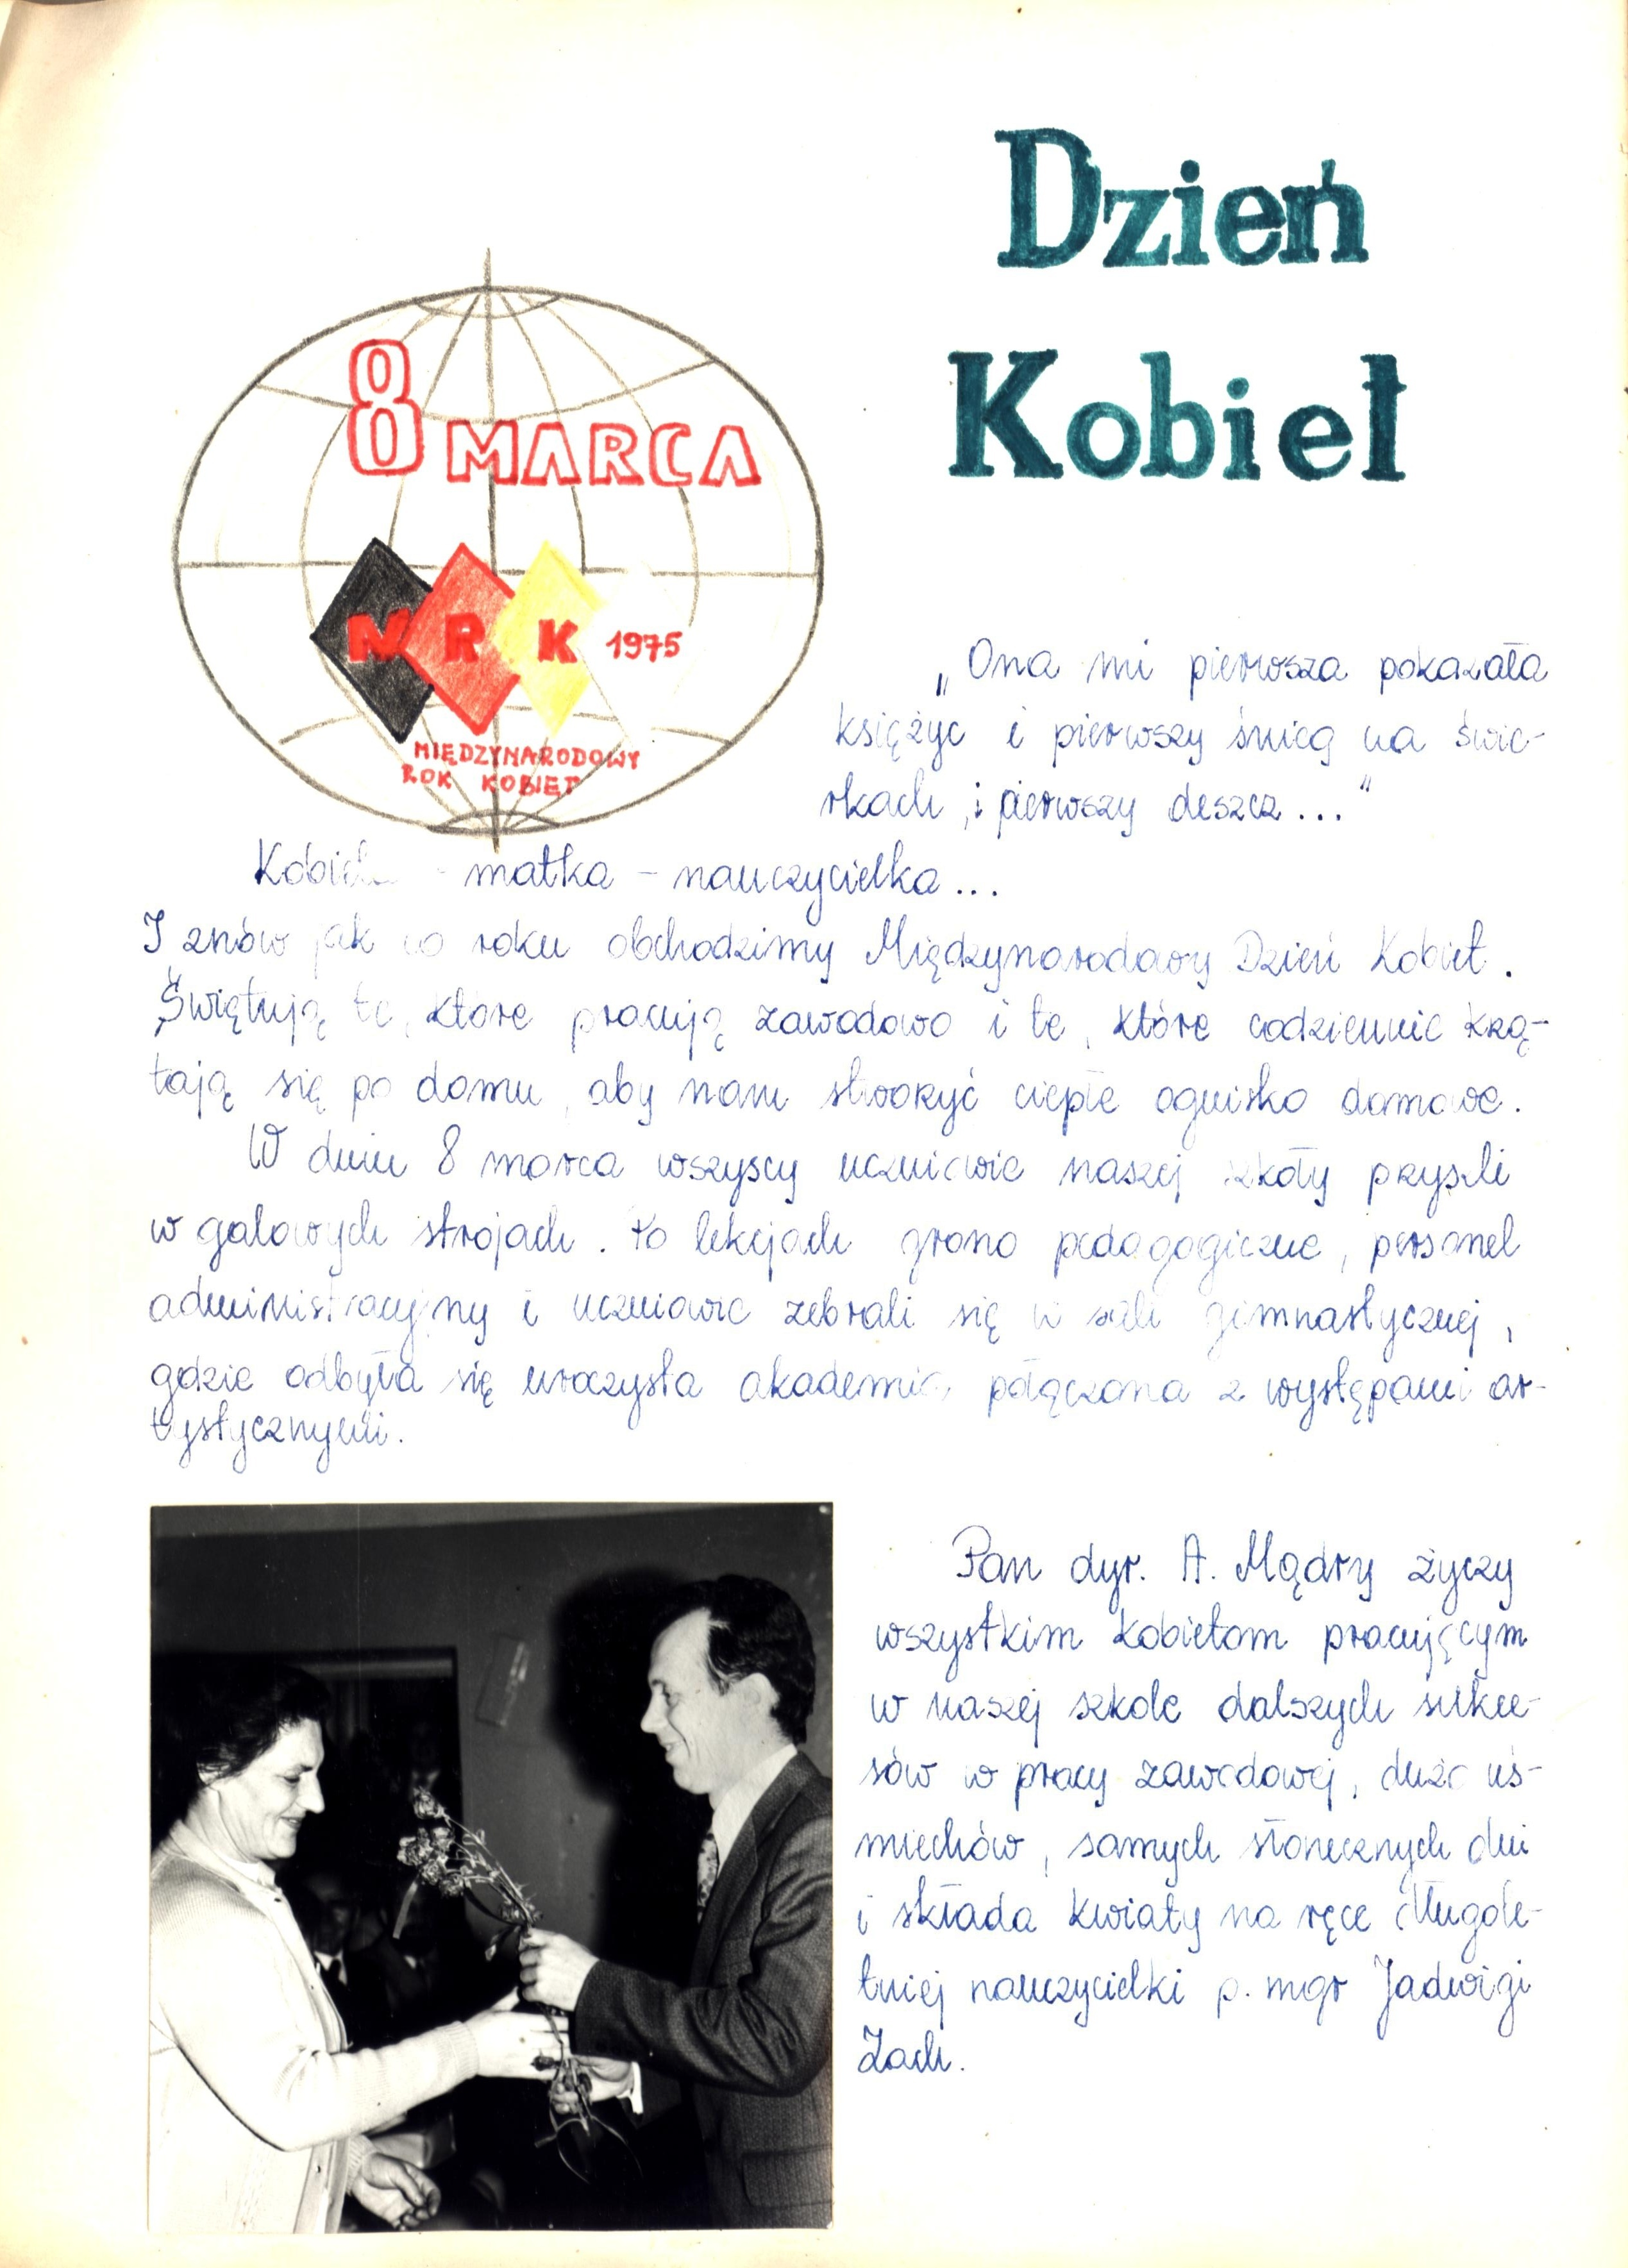 Dzień
Kobiet
8 MARCA
MRK 1975
MIĘDZYNARODOWY
ROK KOBIET
„Ona mi pierwsza pokazała
księżyc i pierwszy śnieg na świe-
rkach, i pierwszy deszcz..."
Kobieta - matka - nauczycielka...
I znów jak co roku obchodzimy Międzynarodowy Dzień Kobiet.
Świętują te, które pracują zawodowo i te, które codziennie krzą-
tają się po domu, aby nam stworzyć ciepłe ognisko domowe.
W dniu 8 marca wszyscy uczniowie naszej szkoły przyszli
w galowych strojach. Po lekcjach grono pedagogiczne, personel
administracyjny i uczniowie zebrali się w sali gimnastycznej,
gdzie odbyła się uroczysta akademia, połączona z występami ar-
tystycznymi.
Pan dyr. A. Mądry życzy
wszystkim kobietom pracującym
w naszej szkole dalszych sukce-
sów w pracy zawodowej, dużo uś-
miechów, samych słonecznych dni
i składa kwiaty na ręce długole-
tniej nauczycielki p. mgr Jadwigi
Zach.